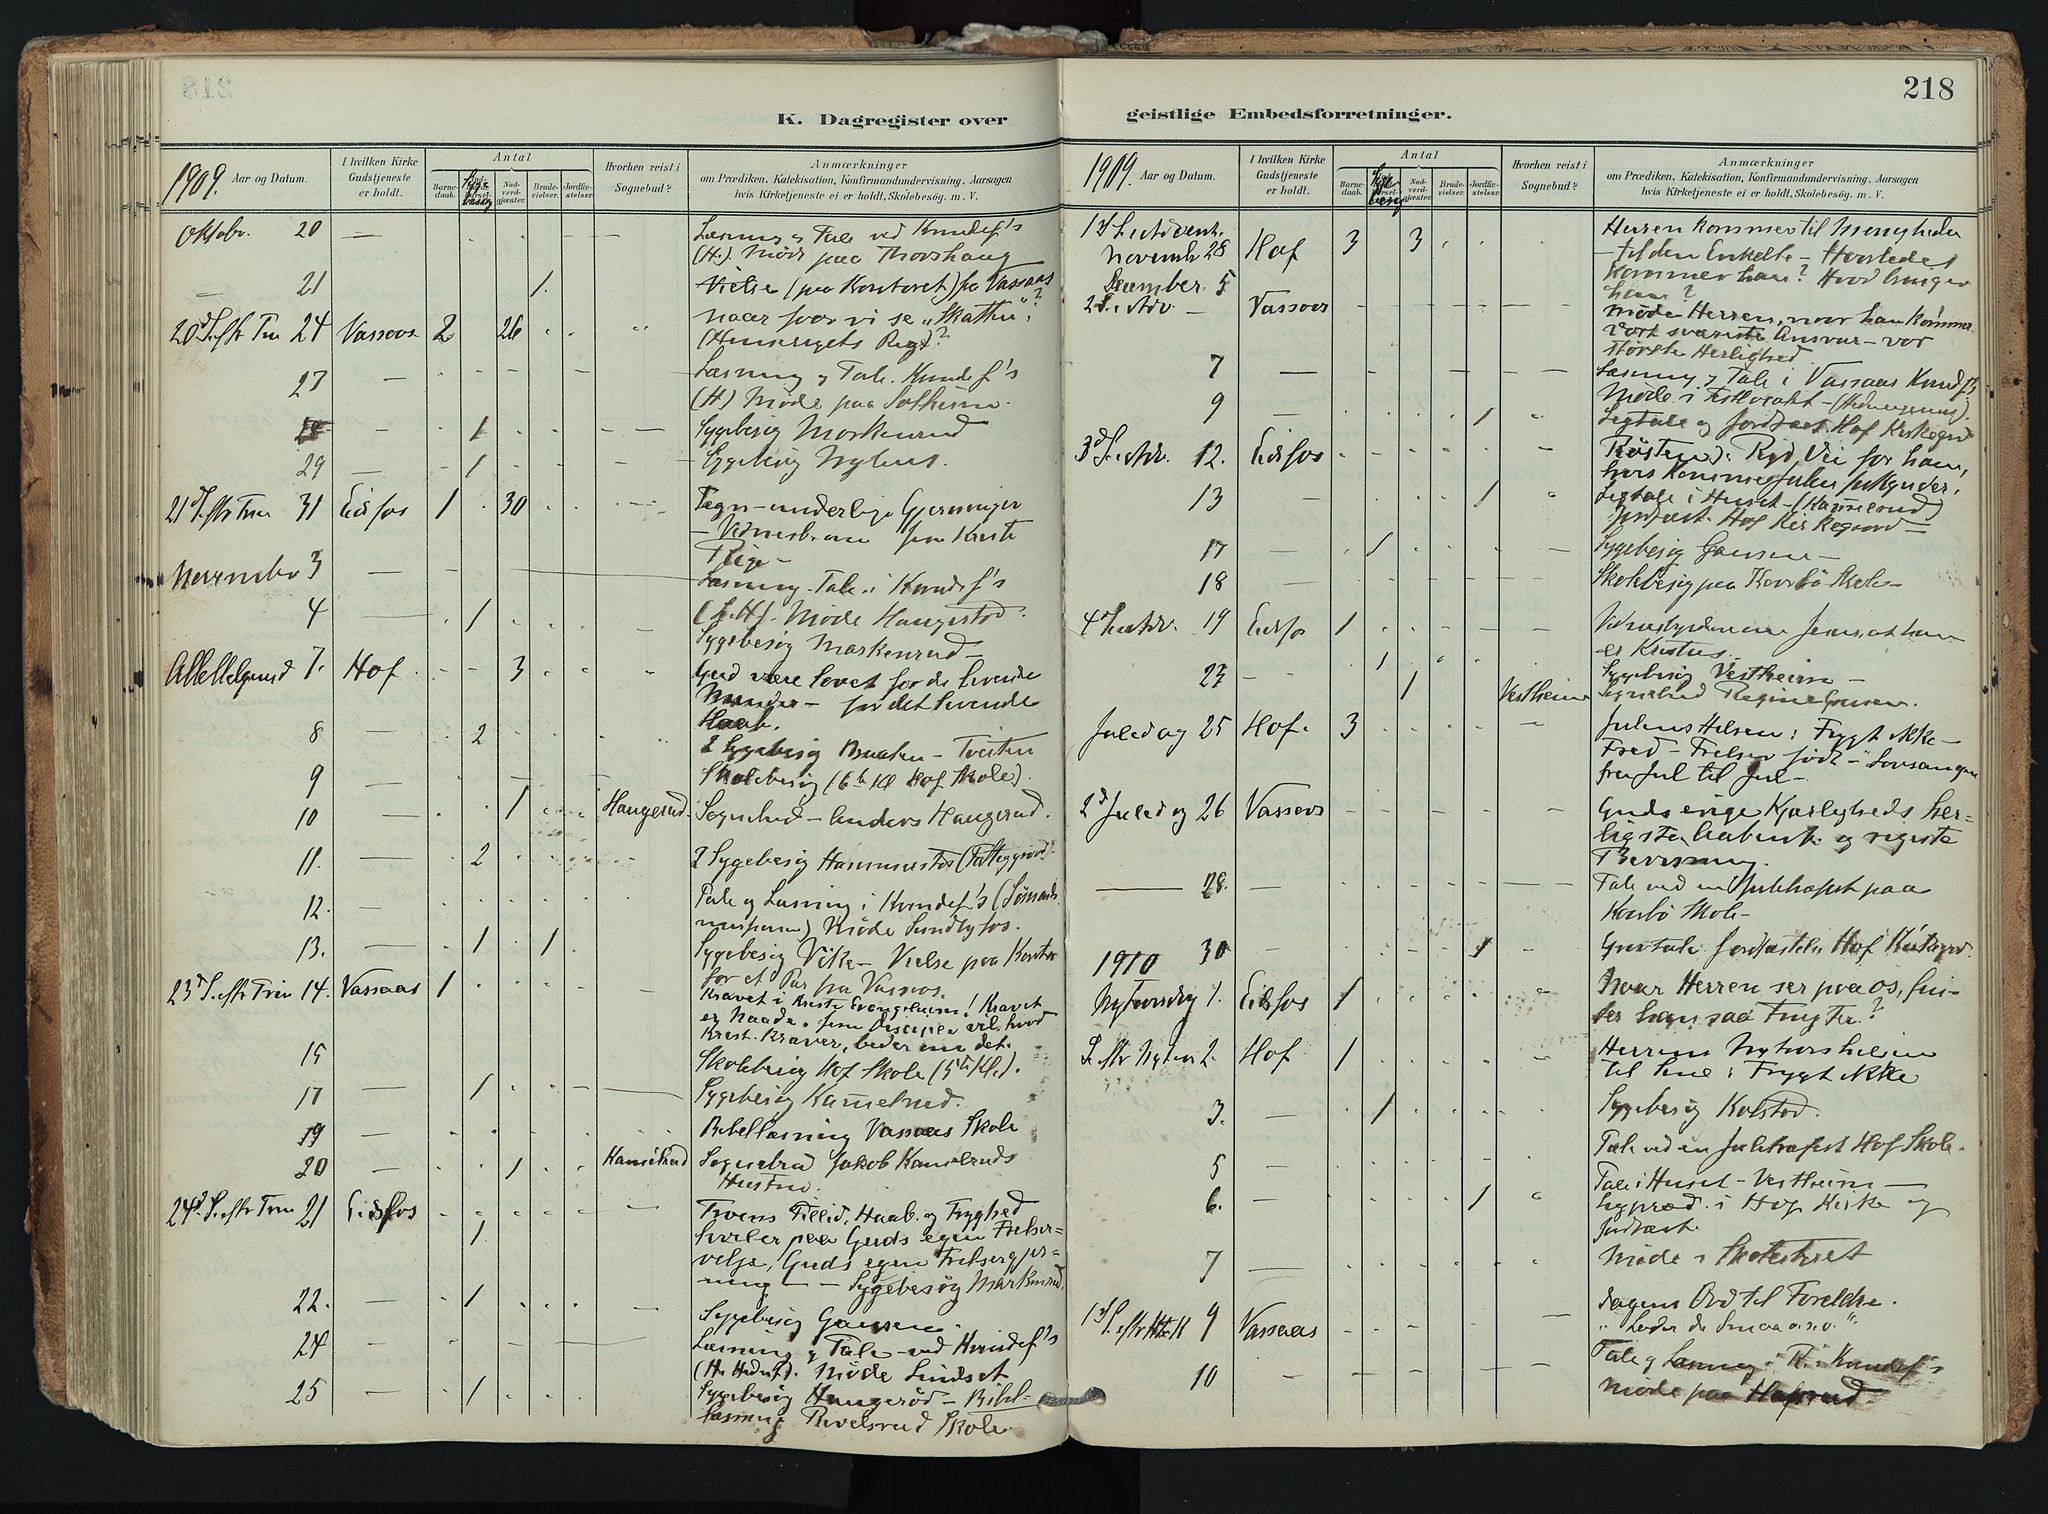 218
K. Dagregister over
geistlige Embedsforretninger.
1909. Aar og Datum.
I hvilken Kirke Gudstjeneste er holdt.
Antal
Barnedaab.
Syge-besøg
Nadverdgjester.
Brudevielser.
Jordfæstelser.
Hvorhen reist i Sognebud?
Anmærkninger
om Prædiken, Katekisation, Konfirmandundervisning, Aarsagen
hvis Kirketjeneste ei er holdt, Skolebesøg. m. V.
Oktober. 20 — Læsning og Tale ved Kvindef's
(H.) Møde paa Thorshaug
21 1. Vielse (paa Kontoret) fra Vassaas
20d S. eftr Trin 24 Vassaas 2 26 Naar faar vi se "Skatten"?
27 — Læsning og Tale. Kvindef's
(H) Møde paa Solheim.
— 1 Sygebesøg Morkenrud
29 — 1 Sygebesøg
21d S. eftr Trin 31 Eidsfos 1 30 Tegn — underlige Gjerninger
Rige —
November 3 — Læsning. Tale i Kvindef's
4 — 1 Møde Haugestad.
Sygebesøg Markenrud —
Allehelgensd 7. Hof — 3 Gud være lovet for de levende
Minder — for det levende
Haab.
8 — 2 2 Sygebesøg Braaten — Tveiten
9 — Skolebesøg (6te Kl Hof Skole).
10 1 Haugerud Sognebud — Anders Haugerud.
11. — 2 2 Sygebesøg
12. — Tale og Læsning i Kvindef's (Sømands
missionen) Møde Sundbyfos.
13. — 1 1 Sygebesøg Vike — Vielse paa Kontor
for et Par fra Vassaas.
23d S. eftr Trin 14. Vassaas 1 Kravet i Kristi Evangelium! Kravet
er Naade.
Krist. kræver, beder om det.
15 Skolebesøg Hof Skole (5te Kl.).
17 — 1 Sygebesøg Kamelrud.
19 — Bibellæsning Vassaas Skole
20 — 1 Kamelrud Sognebud Jakob Kamelruds
Hustru.
24d S. eftr Trin 21 Eidsfos 1 Troens Tillid, Haab og Tryghed
hviler paa Guds egen Frelser-
vilje, Guds egen Frelsergjer-
ning — Sygebesøg Markenrud.
22. — 1 Sygebesøg Gaasen
24 — Læsning og Tale ved Kvindef's
Møde Lindset
25 — 1 Sygebesøg Haugerød — Bibel-
læsning Revelsrud Skole
1909. Aar og Datum.
I hvilken Kirke Gudstjeneste er holdt.
Antal
Barnedaab.
Nadverdgjester.
Brudevielser.
Jordfæstelser.
Hvorhen reist i Sognebud?
Anmærkninger
om Prædiken, Katekisation, Konfirmandundervisning, Aarsagen
hvis Kirketjeneste ei er holdt, Skolebesøg. m. V.
1d S. i Advent.
November 28 Hof 3 3 Herren kommer til Menigheden
— til den Enkelte — Hvorledes
kommer han? Hvad bringer
han?
December 5
2d S. i Adv — Vassaas Møde Herren, naar han kommer
vort sværeste Ansvar — vor
største Herlighed
7 — Læsning og Tale i Vassaas Kvindf's
Møde i
9 — 1 Ligtale og Jordfæst. Hof Kirkegrd
3d S. i Adv. 12. Eidsfos Røsten: Ryd Vei for ham,
13 — 1 Ligtale i Huset — (Kamelrud)
Jordfæst. Hof Kirkegaard —
17 — 1 Sygebesøg Gaasen —
18 — Skolebesøg paa Korsbø Skole —
4d S. i Adv. 19 Eidsfos 1 Vidnesbyrdene om Jesus, at han
er Kristus.
23 — 1 Sygebesøg Vestheim —
1 Vestheim Sognebud Regine Gaasen.
Juledag 25 Hof. 3 Julens Hilsen: Frygt ikke —
Fred — Frelser født — Lovsangen
fra Jul til Jul —
2d Juledag 26 Vassaas Guds evige Kjærligheds her-
ligste og rigeste
Bevisning.
— 28. — Tale ved en Juletræfest paa
Korsbø Skole —
30 — 1 Gravtale Jordfæstelse Hof Kirkegrd.
1910
Nytaarsdag 1. Eidsfos 1 Naar Herren ser paa os, fin-
der han saa Frugter?
S. eftr Nytaar 2. Hof 1 Herrens Nytaarshilsen
til sine: Frygt ikke
3. — 1 Sygebesøg Kolstad.
5 Tale ved en Juletræfest Hof Skole.
6. — 1 Tale i Huset — Vestheim —
Ligpræd. i Hof Kirke og
Jordfæst.
7 — Møde i Skolestyret
1d S. eftr H.3.K 9 Vassaas Dagens Ord til Forældre.
"Leder de Smaa o.s.v."
10 — Tale og Læsning i Kvindef's
Møde paa Hafsrud.